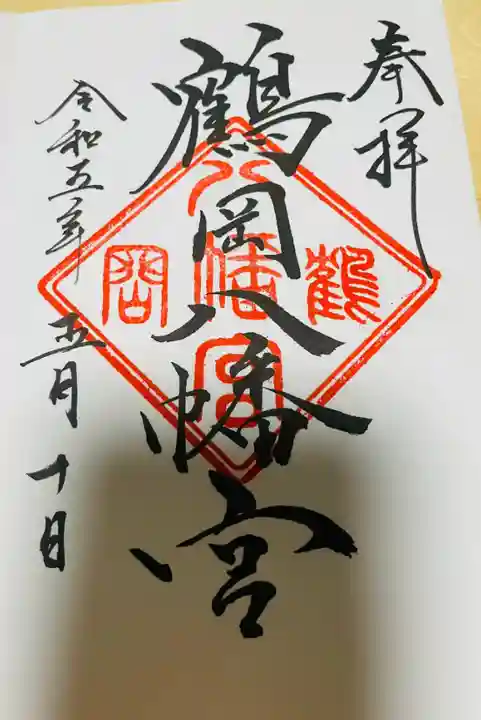 奉拝
鶴岡八幡宮
鶴岡八幡宮
令和五年五月十日